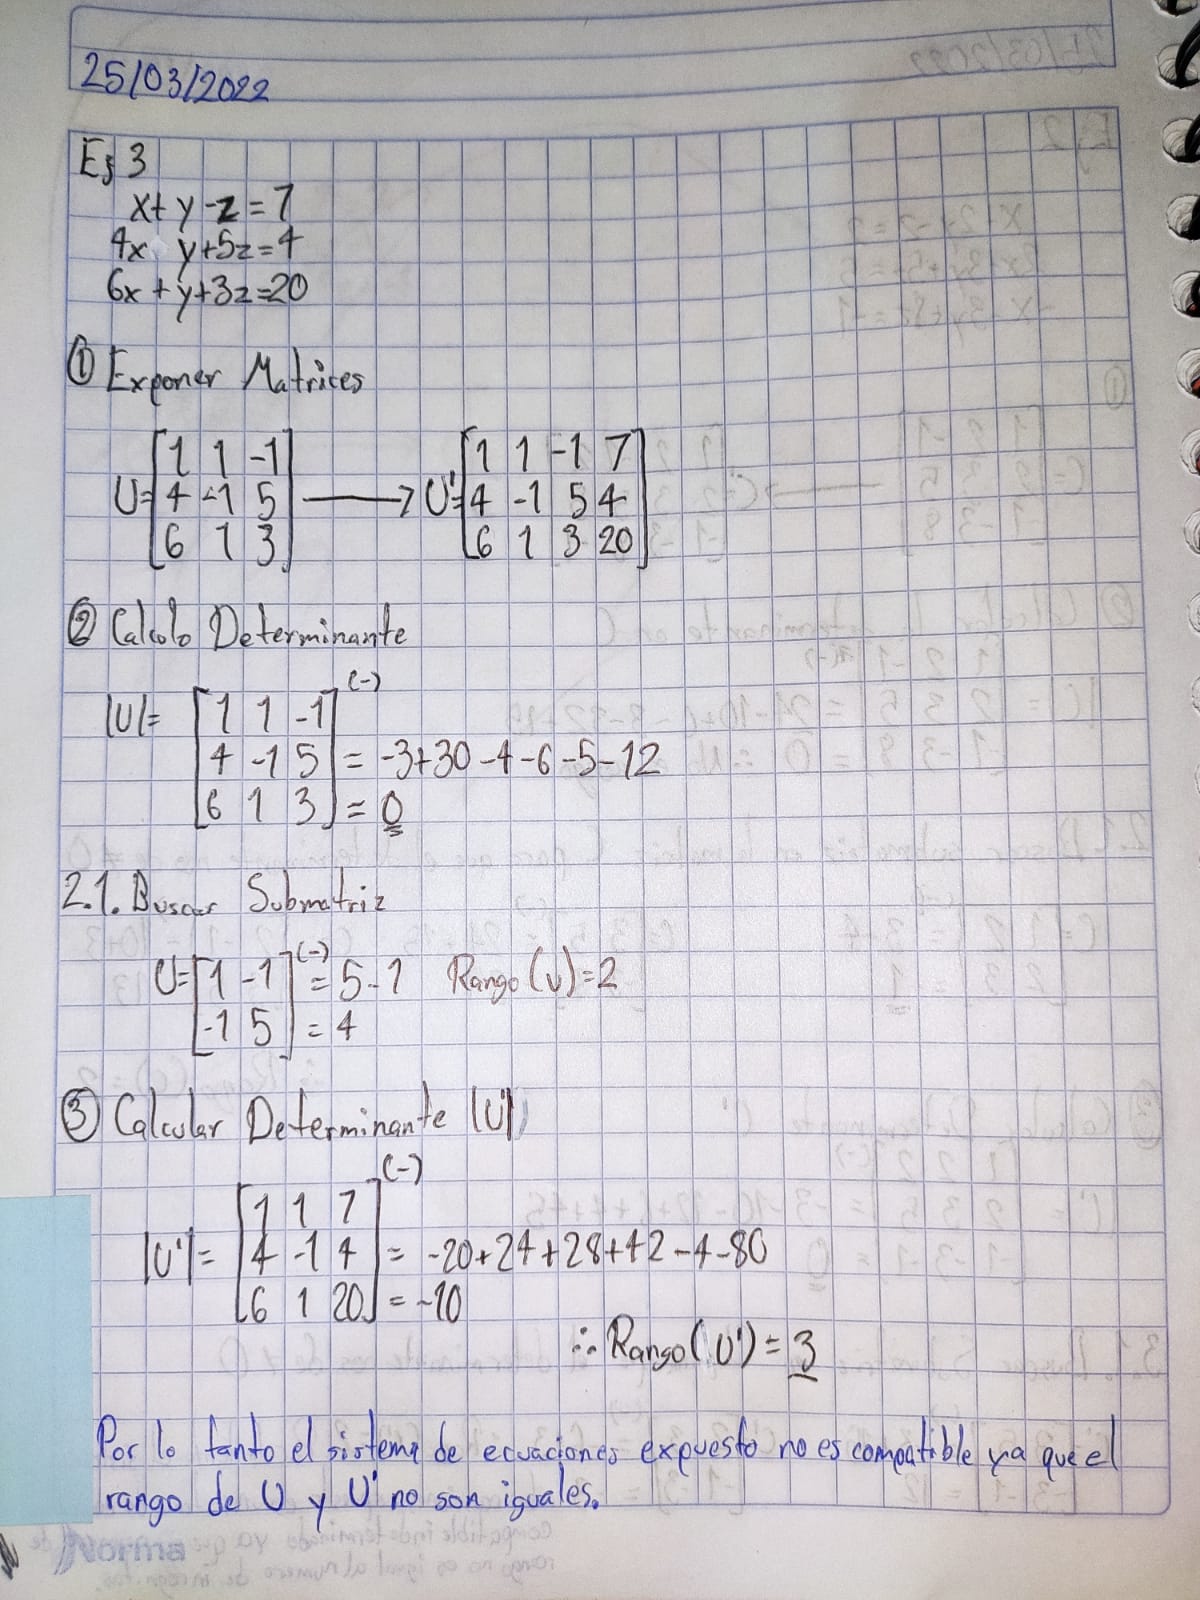 25/03/2022
Ej 3
x+y-z=7
4x y+5z=4
6x+y+3z=20
① Exponer Matrices
U=[1 1 -1] → U'=[1 1 -1 7]
[4 -1 5] [4 -1 5 4]
[6 1 3] [6 1 3 20]
② Calculo Determinante
|U|= [1 1 -1] (-)
[4 -1 5] = -3+30-4-6-5-12
[6 1 3] = 0
2.1. Buscar Submatriz
U=[1 -1] (-) = 5-1 Rango(U)=2
[-1 5] = 4
③ Calcular Determinante |U'|
|U'|= [1 1 7] (-)
[4 -1 4] = -20+24+28+42-4-80
[6 1 20] = -10
∴ Rango(U')=3
Por lo tanto el sistema de ecuaciones expuesto no es compatible ya que el
rango de U y U' no son iguales.
Norma